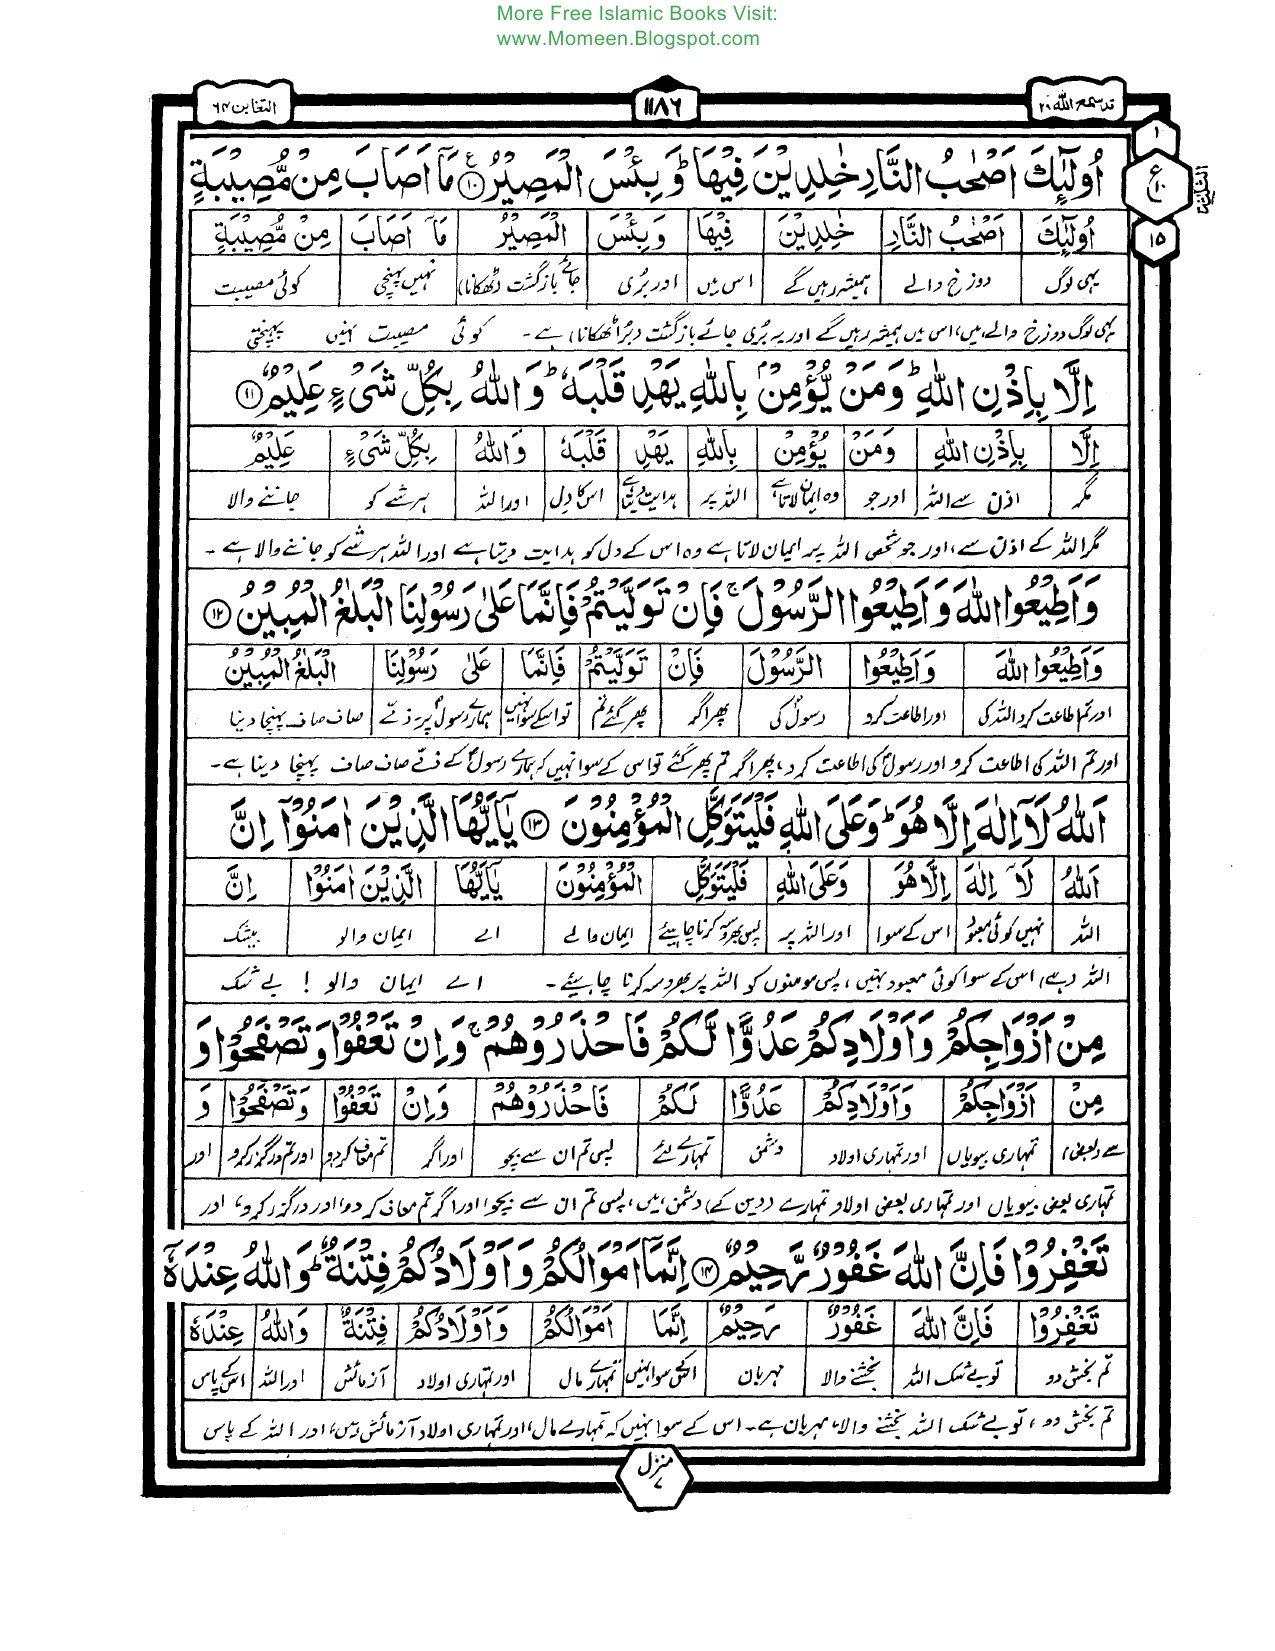 More Free Islamic Books Visit:
www.Momeen.Blogspot.com
قد سمع اللہ ۲۸
۱۱۸۶
التغابن ۶۴
اُولٰٓئِكَ اَصْحٰبُ النَّارِ خٰلِدِيْنَ فِيْهَا ؕ وَ بِئْسَ الْمَصِيْرُ ۱۰ ع مَآ اَصَابَ مِنْ مُّصِيْبَةٍ
۱
ع ۱۰
۱۵
اُولٰٓئِكَ اَصْحٰبُ النَّارِ خٰلِدِيْنَ فِيْهَا وَ بِئْسَ الْمَصِيْرُ مَآ اَصَابَ مِنْ مُّصِيْبَةٍ
یہی لوگ دوزخ والے ہمیشہ رہیں گے اس میں اور بری جائے بازگشت (ٹھکانا) نہیں پہنچی کوئی مصیبت
یہی لوگ دوزخ والے ہیں، اس میں ہمیشہ رہیں گے اور یہ بُری جائے بازگشت (بُرا ٹھکانا) ہے۔ کوئی مصیبت نہیں پہنچتی
اِلَّا بِاِذْنِ اللّٰهِ ؕ وَمَنْ يُّؤْمِنْۢ بِاللّٰهِ يَهْدِ قَلْبَهٗ ؕ وَ اللّٰهُ بِكُلِّ شَىْءٍ عَلِيْمٌ ۱۱
اِلَّا بِاِذْنِ اللّٰهِ وَمَنْ يُّؤْمِنْ بِاللّٰهِ يَهْدِ قَلْبَهٗ وَاللّٰهُ بِكُلِّ شَىْءٍ عَلِيْمٌ
مگر اذن سے اللہ اور جو وہ ایمان لاتا ہے اللہ پر ہدایت دیتا ہے اس کا دل اور اللہ ہر شے کو جاننے والا
مگر اللہ کے اذن سے، اور جو شخص اللہ پر ایمان لاتا ہے وہ اس کے دل کو ہدایت دیتا ہے اور اللہ ہر شے کو جاننے والا ہے۔
وَ اَطِيْعُوا اللّٰهَ وَ اَطِيْعُوا الرَّسُوْلَ ۚ فَاِنْ تَوَلَّيْتُمْ فَاِنَّمَا عَلٰى رَسُوْلِنَا الْبَلٰغُ الْمُبِيْنُ ۱۲
وَاَطِيْعُوا اللّٰهَ وَاَطِيْعُوا الرَّسُوْلَ فَاِنْ تَوَلَّيْتُمْ فَاِنَّمَا عَلٰى رَسُوْلِنَا الْبَلٰغُ الْمُبِيْنُ
اور تم اطاعت کرو اللہ کی اور اطاعت کرو رسولؐ کی پھر اگر پھر گئے تم تو اسکے سوا نہیں ہمارے رسولؐ پر۔ ذمے صاف صاف پہنچا دینا
اور تم اللہ کی اطاعت کرو اور رسولؐ کی اطاعت کرو، پھر اگر تم پھر گئے تو اس کے سوا نہیں کہ ہمارے رسولؐ کے ذمے صاف صاف پہنچا دینا ہے۔
اَللّٰهُ لَآ اِلٰهَ اِلَّا هُوَ ؕ وَعَلَى اللّٰهِ فَلْيَتَوَكَّلِ الْمُؤْمِنُوْنَ ۱۳ يٰٓاَيُّهَا الَّذِيْنَ اٰمَنُوْٓا اِنَّ
اَللّٰهُ لَآ اِلٰهَ اِلَّا هُوَ وَعَلَى اللّٰهِ فَلْيَتَوَكَّلِ الْمُؤْمِنُوْنَ يٰٓاَيُّهَا الَّذِيْنَ اٰمَنُوْٓا اِنَّ
اللہ نہیں کوئی معبود اس کے سوا اور اللہ پر پس بھروسہ کرنا چاہیئے ایمان والے اے ایمان والو بیشک
اللہ (ہے) اس کے سوا کوئی معبود نہیں، پس مومنوں کو اللہ پر بھروسہ کرنا چاہیئے۔ اے ایمان والو! بے شک
مِنْ اَزْوَاجِكُمْ وَ اَوْلَادِكُمْ عَدُوًّا لَّكُمْ فَاحْذَرُوْهُمْ ۚ وَ اِنْ تَعْفُوْا وَ تَصْفَحُوْا وَ
مِنْ اَزْوَاجِكُمْ وَاَوْلَادِكُمْ عَدُوًّا لَّكُمْ فَاحْذَرُوْهُمْ وَاِنْ تَعْفُوْا وَتَصْفَحُوْا وَ
سے (بعض) تمہاری بیویاں اور تمہاری اولاد دشمن تمہارے لئے پس تم ان سے بچو اور اگر تم معاف کردو اور تم درگزر کرو اور
تمہاری بعض بیویاں اور تمہاری بعض اولاد تمہارے (دین کے) دشمن ہیں، پس تم ان سے بچو، اور اگر تم معاف کردو، اور درگزر کرو، اور
تَغْفِرُوْا فَاِنَّ اللّٰهَ غَفُوْرٌ رَّحِيْمٌ ۱۴ اِنَّمَآ اَمْوَالُكُمْ وَ اَوْلَادُكُمْ فِتْنَةٌ ؕ وَ اللّٰهُ عِنْدَهٗٓ
تَغْفِرُوْا فَاِنَّ اللّٰهَ غَفُوْرٌ رَّحِيْمٌ اِنَّمَآ اَمْوَالُكُمْ وَاَوْلَادُكُمْ فِتْنَةٌ وَاللّٰهُ عِنْدَهٗ
تم بخش دو تو بے شک اللہ بخشنے والا مہربان اسکے سوا نہیں تمہارے مال اور تمہاری اولاد آزمائش اور اللہ اس کے پاس
تم بخش دو، تو بے شک اللہ بخشنے والا، مہربان ہے۔ اس کے سوا نہیں کہ تمہارے مال، اور تمہاری اولاد آزمائش ہیں، اور اللہ کے پاس
منزل ۷